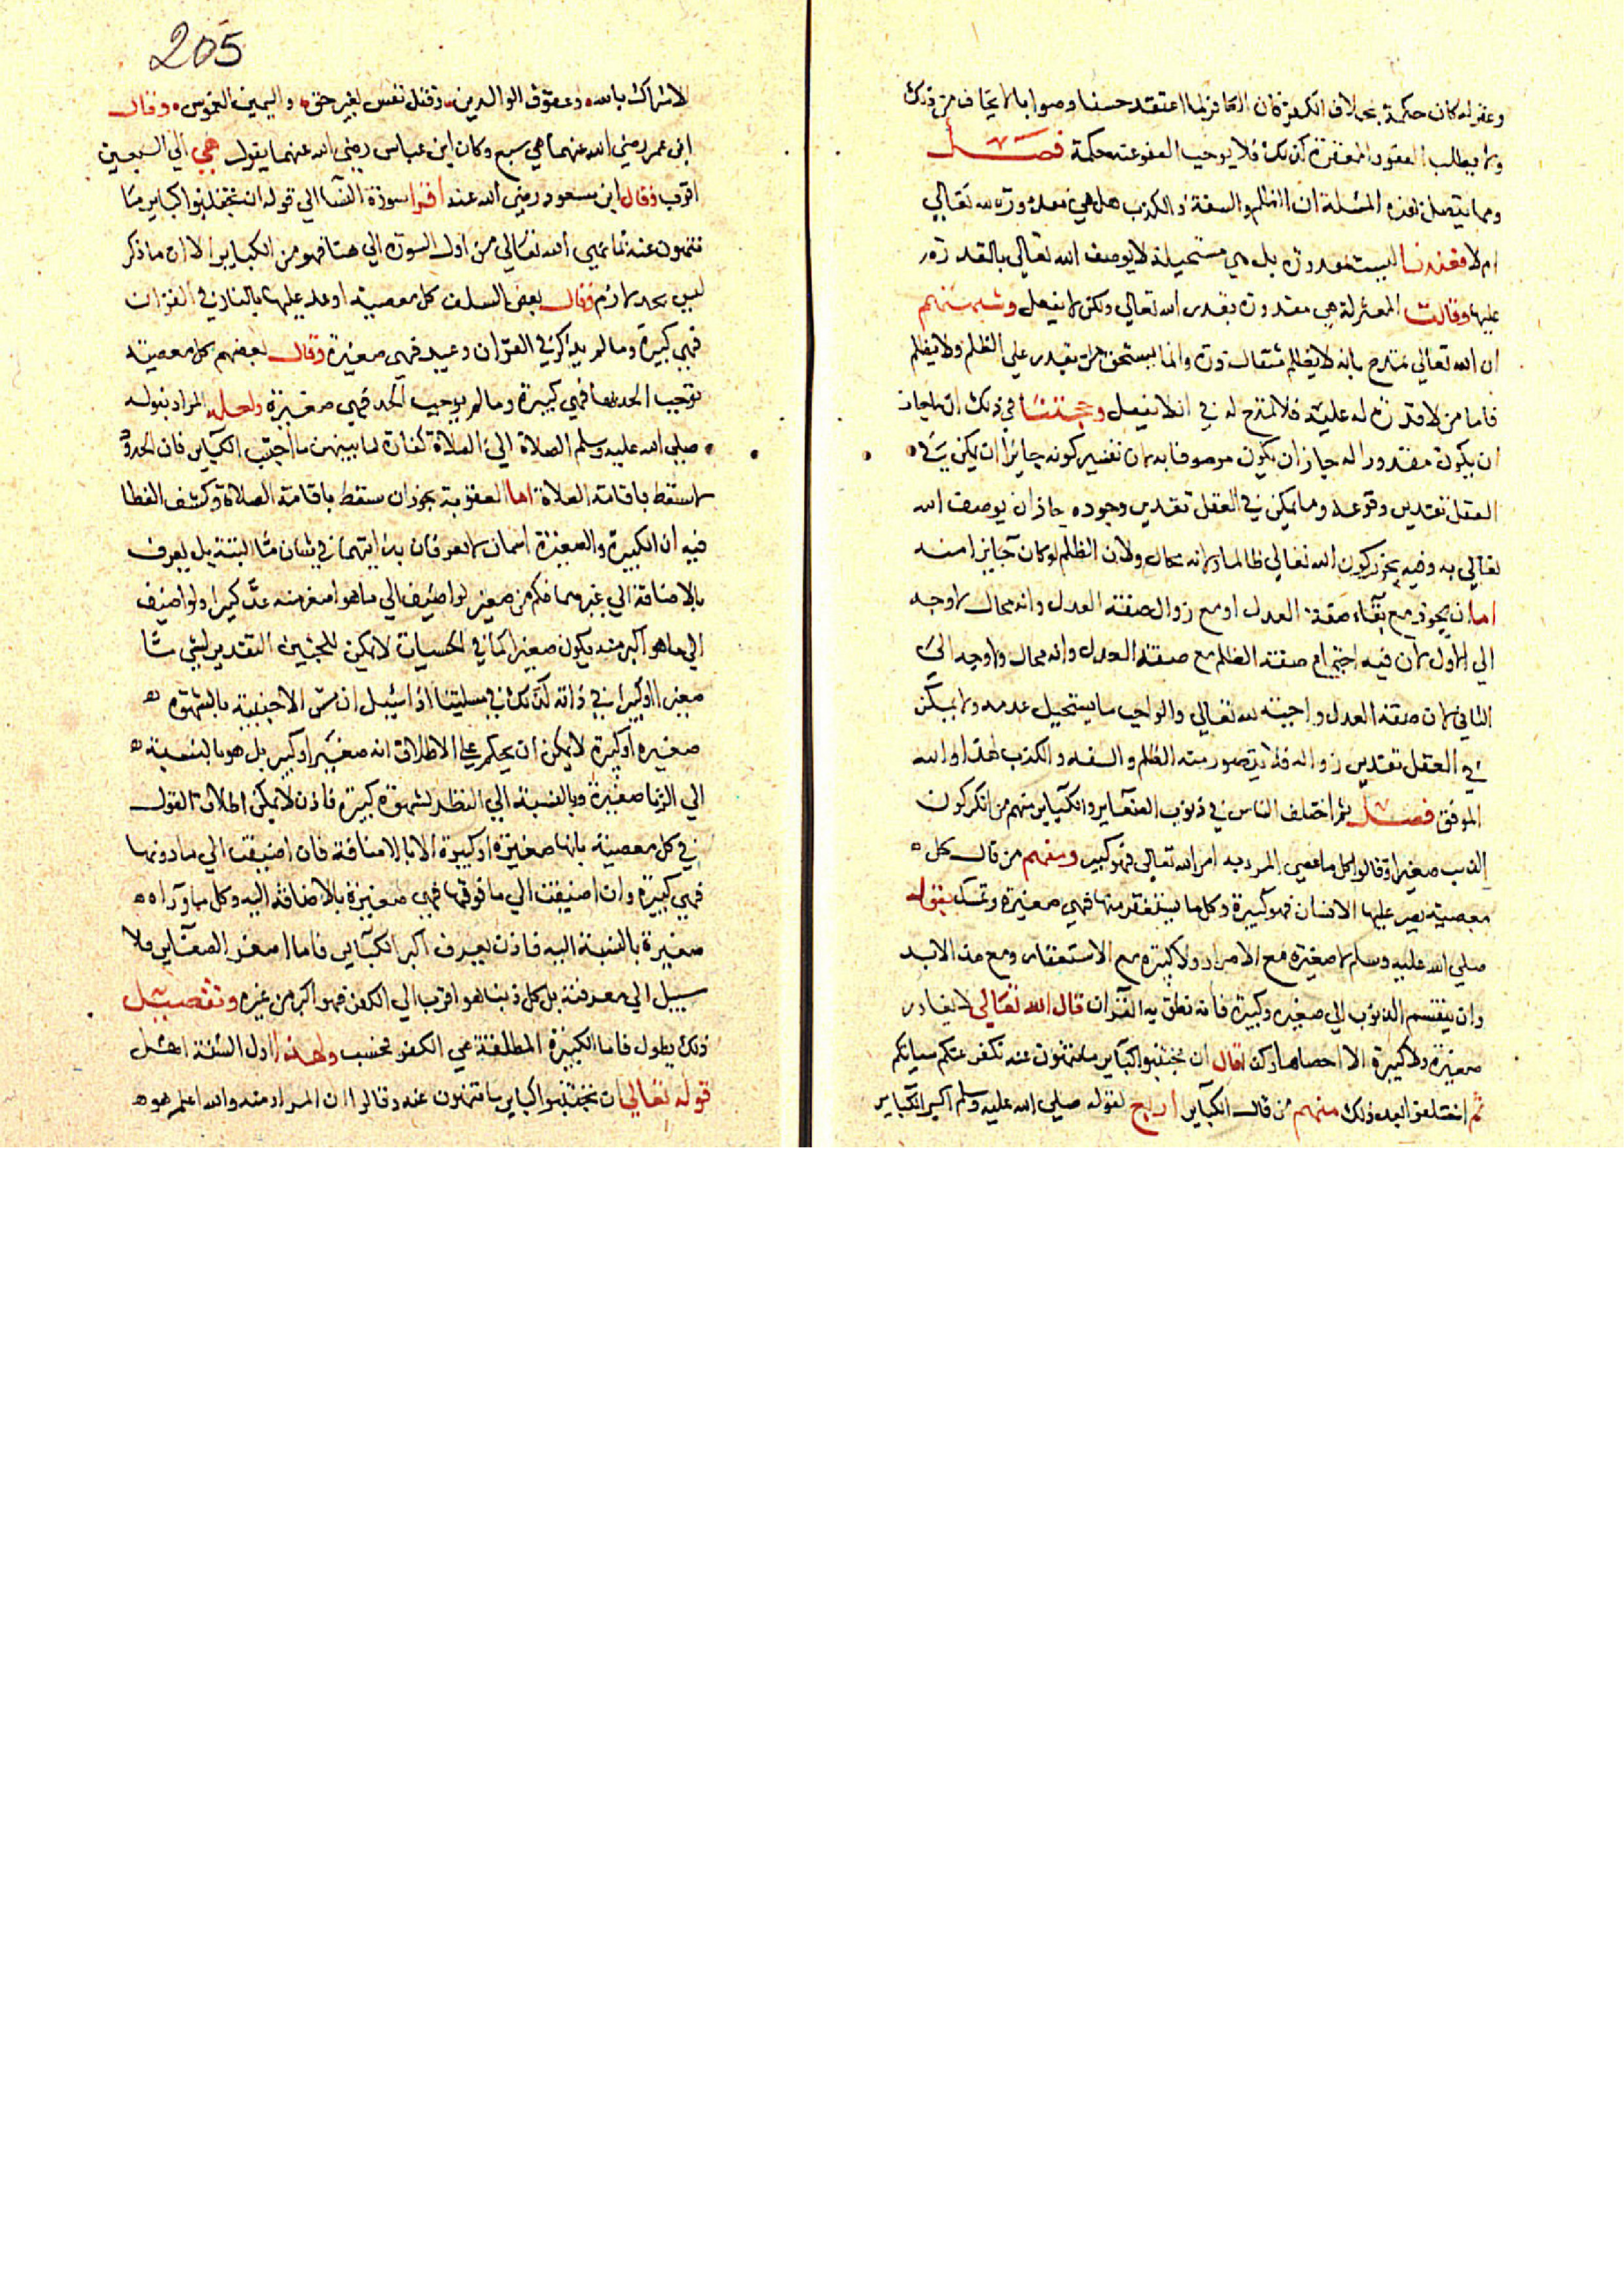 وعفو له كان حكمة بخلاف الكفر فان الكافر لما اعتقد حسنا وصوابا لا يخاف من ذلك
ولا يطلب العفو والمغفرة لذلك فلا يوجب العفو عنه حكمة فصل
ومما يتصل بهذه المسئلة ان الظلم والسفه والكذب هل هي مقدورة لله تعالي
ام لا فعندنا ليست بمقدورة بل هي مستحيلة لا يوصف الله تعالي بالقدرة
عليها وقالت المعتزلة هي مقدورة بقدرة الله تعالي ولكن لا يفعل وشبهتهم
ان الله تعالي تمدح بانه لا يظلم مثقال ذرة وانما يستحق من يقدر علي الظلم ولا يظلم
فاما من لا قدرة له عليه فلا تمدح له في ان لا يفعل وحجتنا في ذلك ان ما جاز
ان يكون مقدورا له جاز ان يكون موصوفا به لان تفسير كونه جايزا ان يكن في
العقل تقدير وقوعه وما يمكن في العقل تقدير وجوده جاز ان يوصف الله
تعالي به وفيه تجويز كون الله تعالي ظالما وانه محال ولان الظلم لو كان جايزا منه
اما ان يجوز مع بقاء صفة العدل او مع زوال صفة العدل وانه محال لا وجه
الي الاول لان فيه اجتماع صفة الظلم مع صفة العدل وانه محال ولا وجه الي
الثاني لان صفة العدل واجبة لله تعالي والواجب ما يستحيل عدمه ولا يمكن
في العقل تقدير زواله فلا يتصور منه الظلم والسفه والكذب لهذا والله
الموفق فصل ثم اختلف الناس في ذنوب الصغاير والكباير منهم من انكر كون
الذنب صغيرا وقالوا كل ما عصي المرء به امر الله تعالي فهو كبير ومنهم من قال كل
معصية يصر عليها الانسان فهو كبيرة وكل ما يستغفر منها فهي صغيرة وتمسك بقوله
صلي الله عليه وسلم لا صغيرة مع الاصرار ولا كبيرة مع الاستغفار ومع هذا لا بد
وان ينقسم الذنوب الي صغيرة وكبيرة فانه نطق به القران قال الله تعالي لا يغادر
صغيرة ولا كبيرة الا احصاها وكذا قال ان تجتنبوا كباير ما تنهون عنه نكفر عنكم سياتكم
ثم اختلفوا بعد ذلك منهم من قال الكباير اربع لقوله صلي الله عليه وسلم اكبر الكباير
205
الاشراك بالله وعقوق الوالدين وقتل نفس بغير حق واليمين الغموس وقال
ابن عمر رضي الله عنهما هي سبع وكان ابن عباس رضي الله عنهما يقول هي الي السبعين
اقرب وقال ابن مسعود رضي الله عنه اقرا سورة النسا الي قوله ان تجتنبوا كباير ما
تنهون عنه فما نهي الله تعالي من اول السورة الي هنا فهو من الكباير الا ان ما ذكر
ليس بحد لازم فقال بعض السلف كل معصية اوعد عليها بالنار في القران
فهي كبيرة وما لم يذكر في القران وعيد فهي صغيرة وقال بعضهم كل معصية
توجب الحد فهي كبيرة وما لم يوجب الحد فهي صغيرة ولعل المراد بقوله
صلي الله عليه وسلم الصلاة الي الصلاة كفارة لما بينهن ما اجتنب الكباير فان الحدود
لا تسقط باقامة الصلاة اما العقوبة يجوز ان يسقط باقامة الصلاة وكشف الغطا
فيه ان الكبيرة والصغيرة اسمان لا يعرفان بذاتيهما في بيان البتة بل يعرف
بالاضافة الي غيرهما فكم من صغير لو اضيف الي ما هو اصغر منه عد كبيرا ولو اضيف
الي ما هو اكبر منه يكون صغيرا كما في الحسيات لا يمكن التقدير لشي ما
صغيرا او كبيرا في ذاته كذلك في مسئلتنا اذا سئل ان مس الاجنبية بالشهوة
صغيرة او كبيرة لا يمكن ان يحكم علي الاطلاق انه صغير او كبير بل هو بالنسبة
الي الزنا صغيرة وبالنسبة الي النظر لشهوة كبيرة فاذن لا يمكن اطلاق القول
في كل معصية بانها صغيرة او كبيرة الا بالاضافة فان اضيفت الي ما دونها
فهي كبيرة وان اضيفت الي ما فوقها فهي صغيرة بالاضافة اليه وكل ما وراه
صغيرة بالنسبة اليه فاذن يعرف اكبر الكباير فاما اصغر الصغاير فلا
سبيل الي معرفته بل كل ذنب هو اقرب الي الكفر فهو اكبر من غيره وتفصيل
ذلك يطول فاما الكبيرة المطلقة هي الكفر فحسب ولهذا اول السنة اهل
قوله تعالي ان تجتنبوا كباير ما تنهون عنه وقالوا ان المراد منه والله اعلم هو